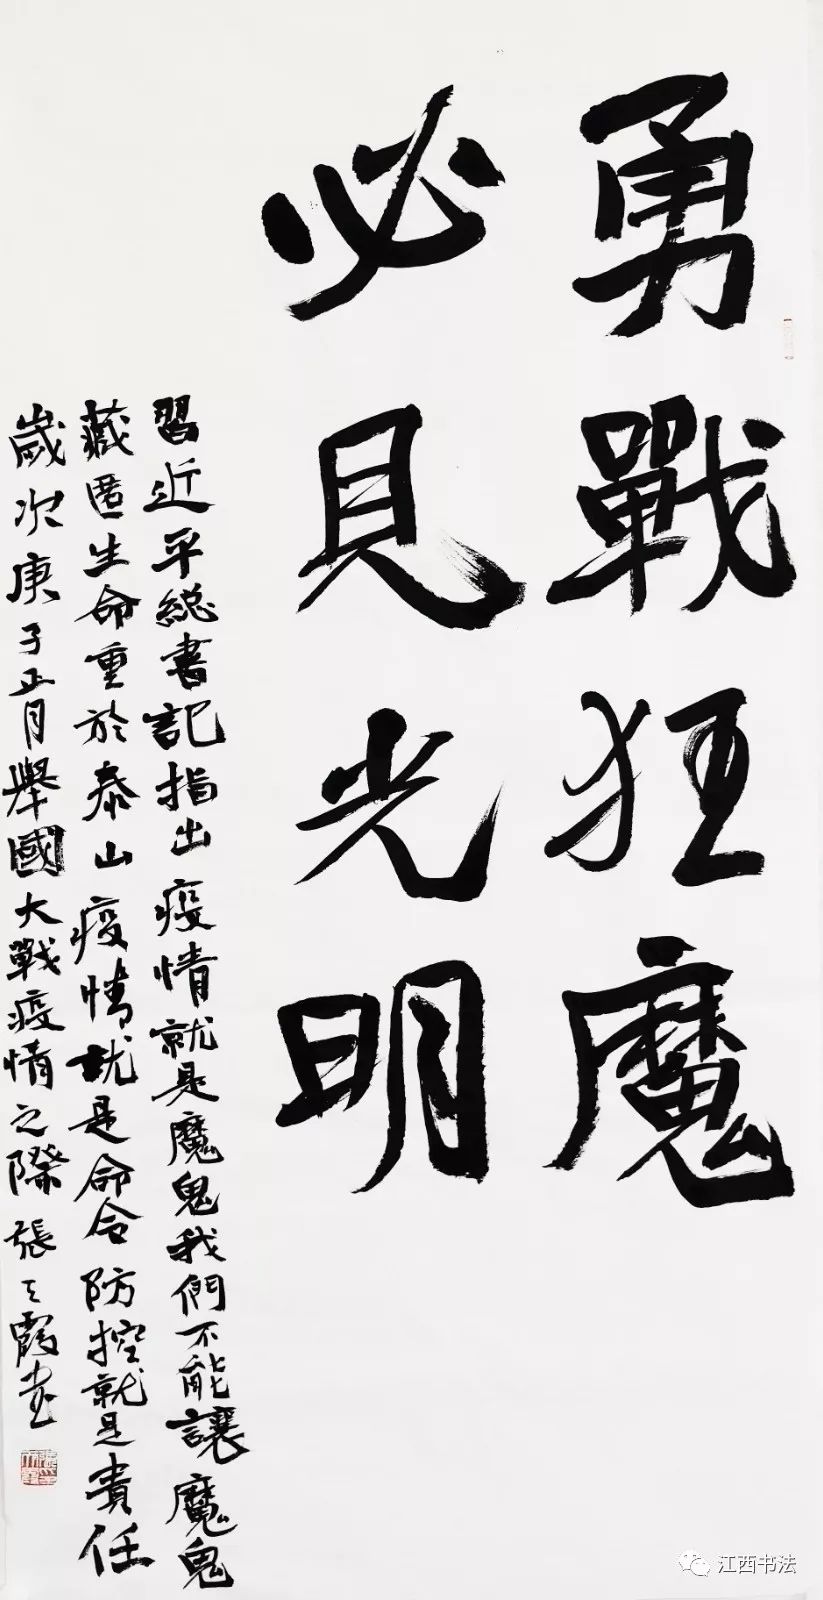 勇戰狂魔
必見光明
習近平總書記指出疫情就是魔鬼我們不能讓魔鬼
藏匿生命重於泰山疫情就是命令防控就是責任
歲次庚子正月舉國大戰疫情之際張天霞书
江西书法